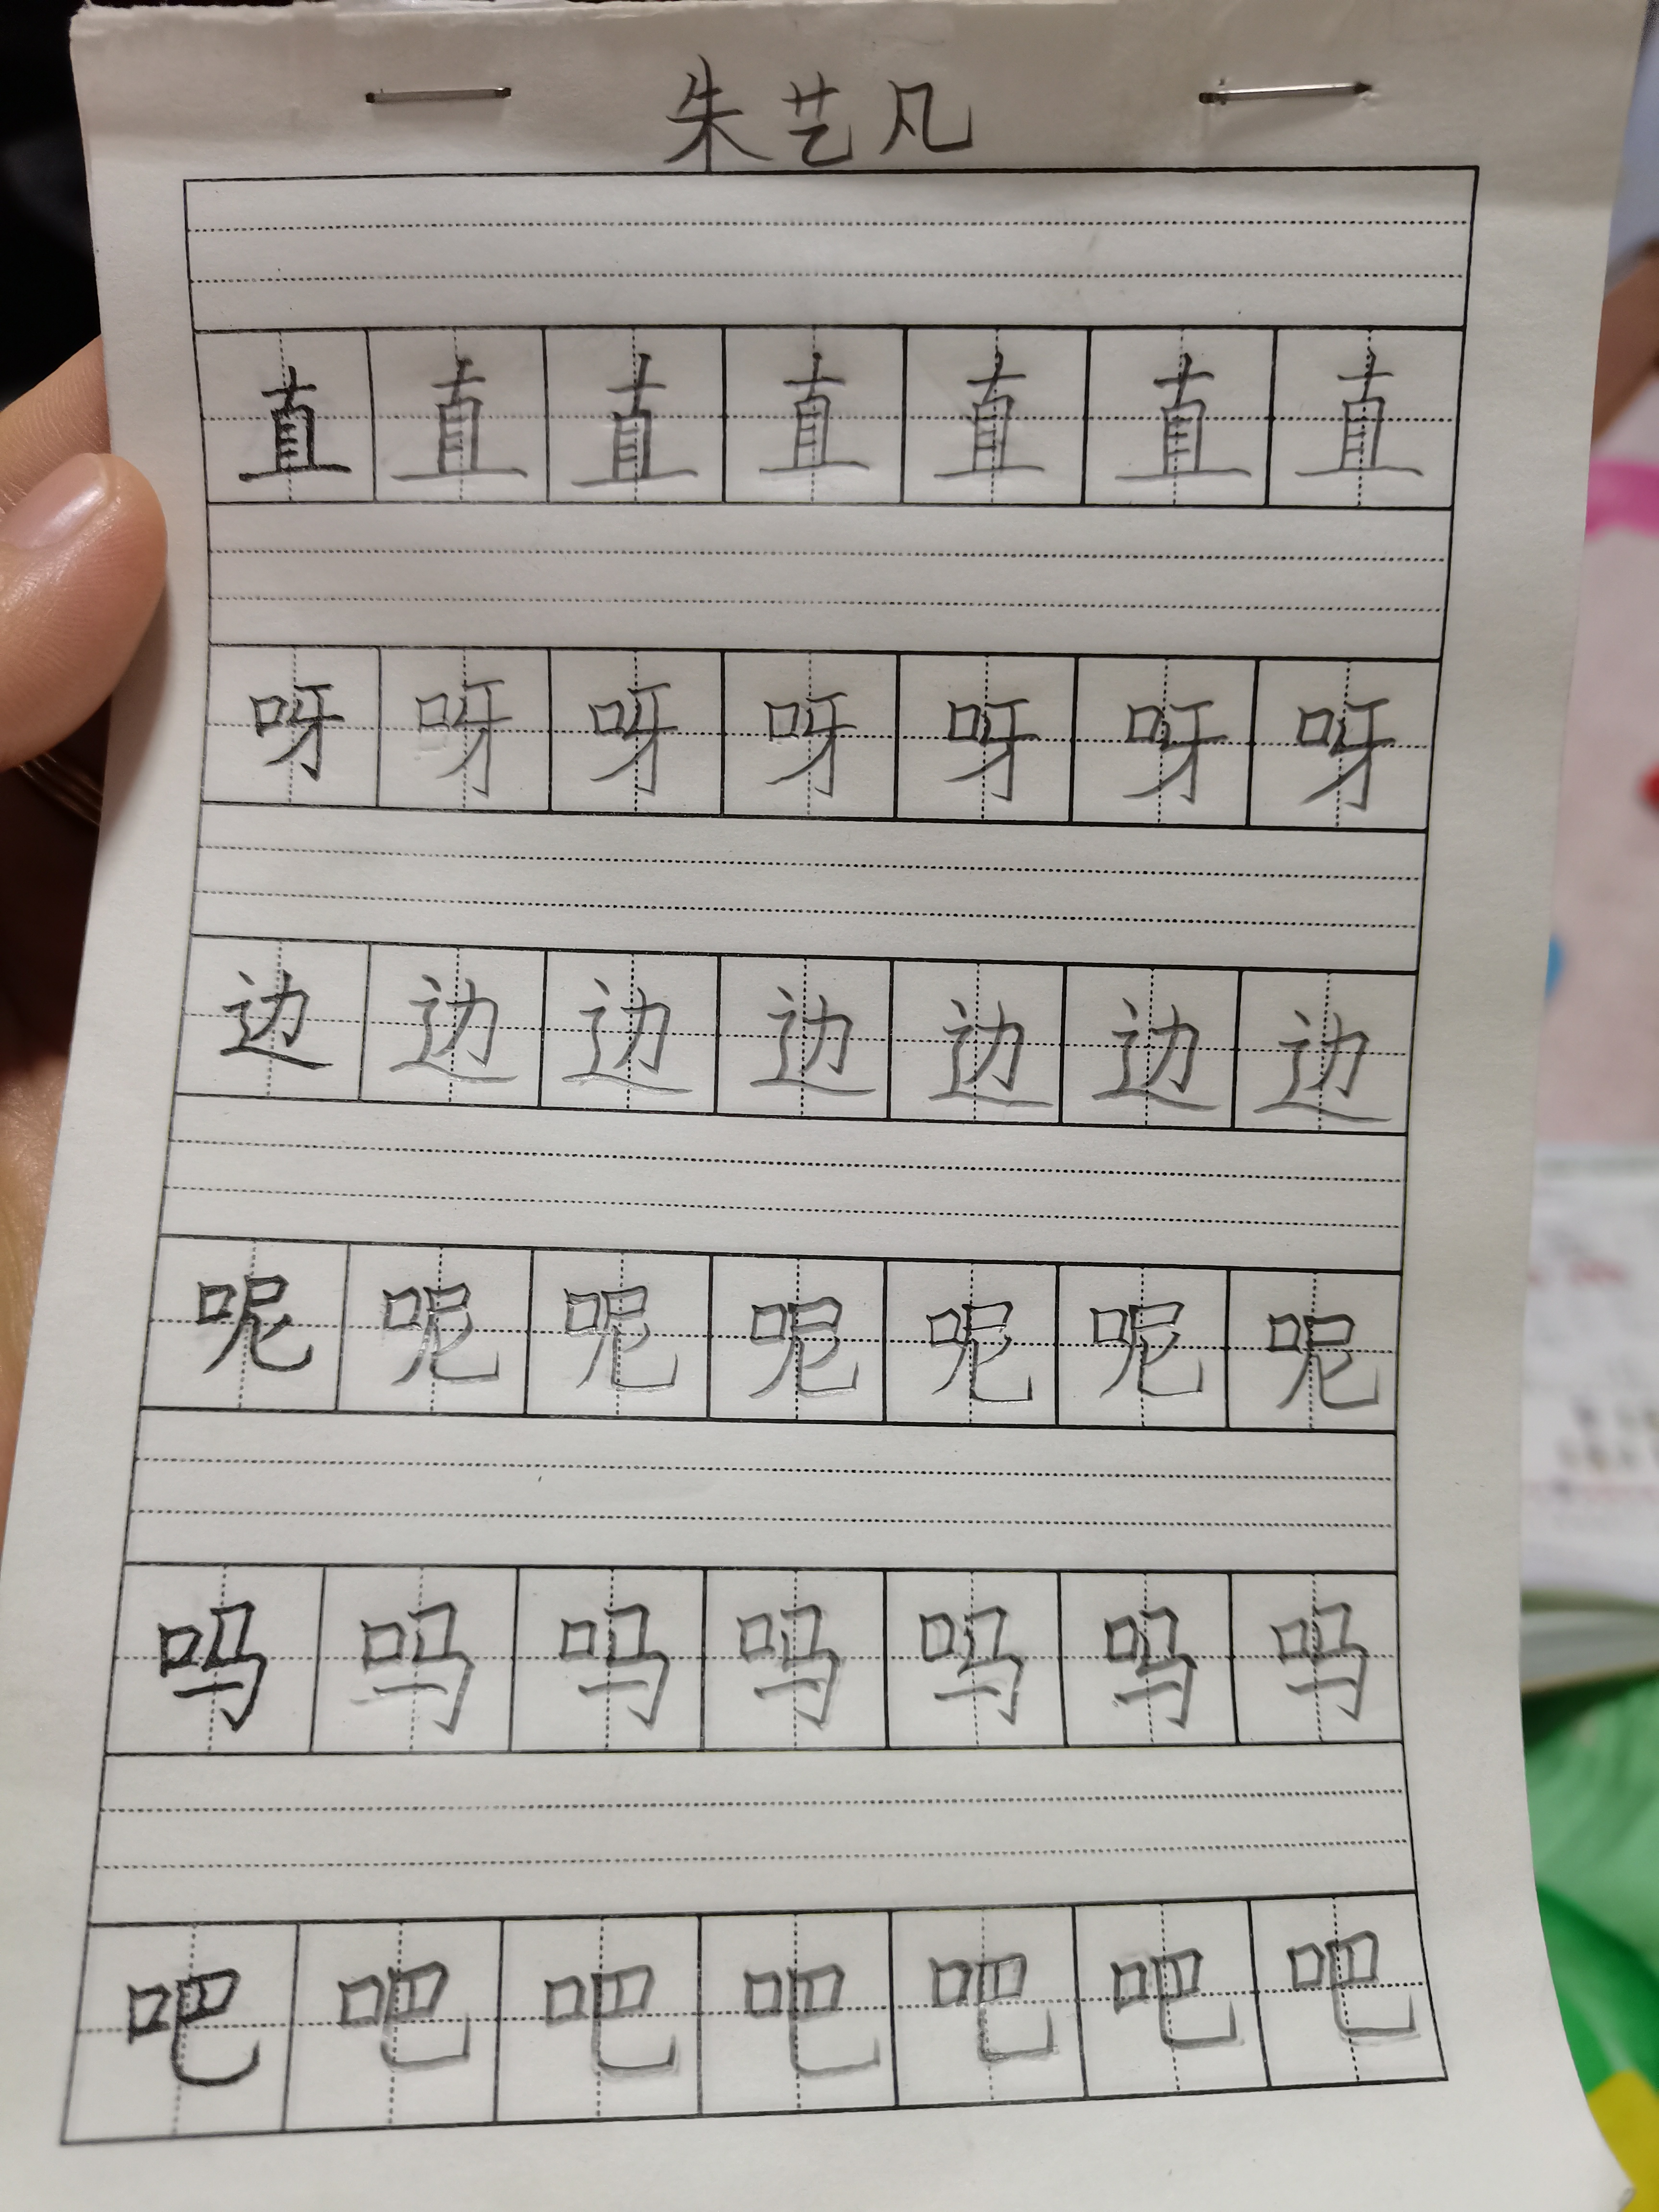 朱艺凡
直 直 直 直 直 直 直
呀 呀 呀 呀 呀 呀 呀
边 边 边 边 边 边 边
呢 呢 呢 呢 呢 呢 呢
吗 吗 吗 吗 吗 吗 吗
吧 吧 吧 吧 吧 吧 吧